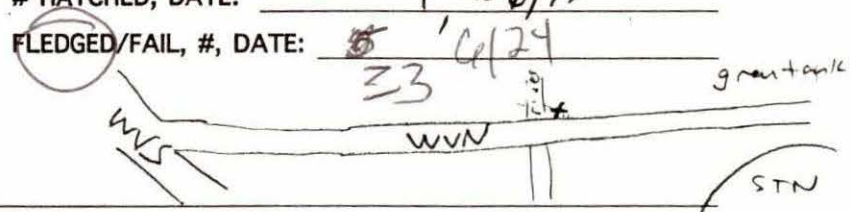 # HATCHED, DATE:
FLEDGED/FAIL, #, DATE: 6/24
≥3
green tank
WVS WVN
STN